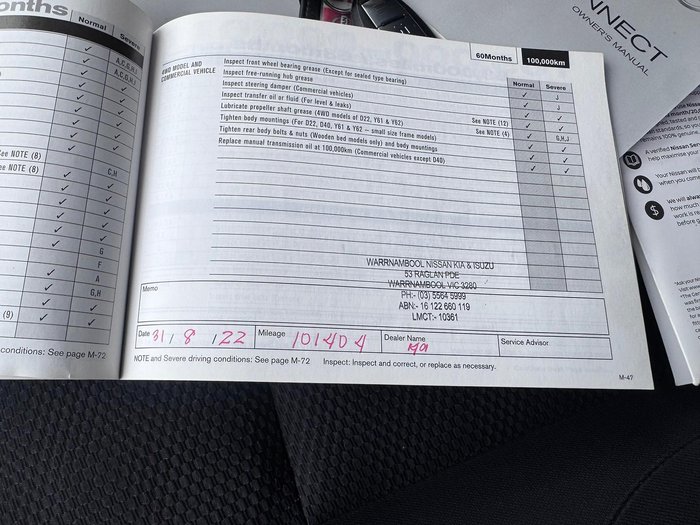 onths
Normal
Severe
A,C,G,H,I
A,C,G,H,I
ee NOTE (8)
ee NOTE (8)
G,H
G
F
A
G,H
(9)
conditions: See page M-72
60Months
100,000km
4WD MODEL AND
COMMERCIAL VEHICLE
Normal
Severe
Inspect front wheel bearing grease (Except for sealed type bearing)
✓ J
Inspect free-running hub grease
✓ J
Inspect steering damper (Commercial vehicles)
✓ ✓
Inspect transfer oil or fluid (For level & leaks)
✓ ✓
Lubricate propeller shaft grease (4WD models of D22, Y61 & Y62)
See NOTE (12)
✓ G,H,J
Tighten body mountings (For D22, D40, Y61 & Y62 – small size frame models)
See NOTE (4)
✓ ✓
Tighten rear body bolts & nuts (Wooden bed models only) and body mountings
✓ ✓
Replace manual transmission oil at 100,000km (Commercial vehicles except D40)
✓ ✓
WARRNAMBOOL NISSAN KIA & ISUZU
53 RAGLAN PDE
WARRNAMBOOL VIC 3280
PH:- (03) 5564 5999
ABN:- 16 122 660 119
LMCT:- 10361
Memo
Date 31 / 8 / 22
Mileage 101404
Dealer Name
Service Advisor
NOTE and Severe driving conditions: See page M-72
Inspect: Inspect and correct, or replace as necessary.
M-47
NNECT
OWNER'S MANUAL
A verified Nissan Servi
help maximise your
Your Nissan will b
when you come
We will alwa
how much
work is re
before g